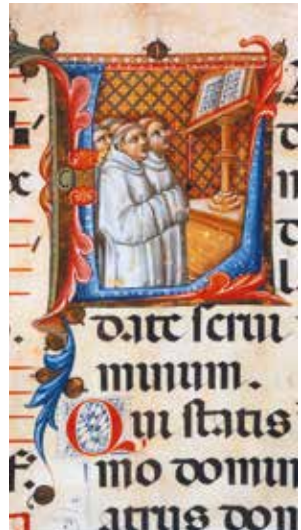 date ſerui
minum.
Qui ſtatis
mo domin
atriis dom